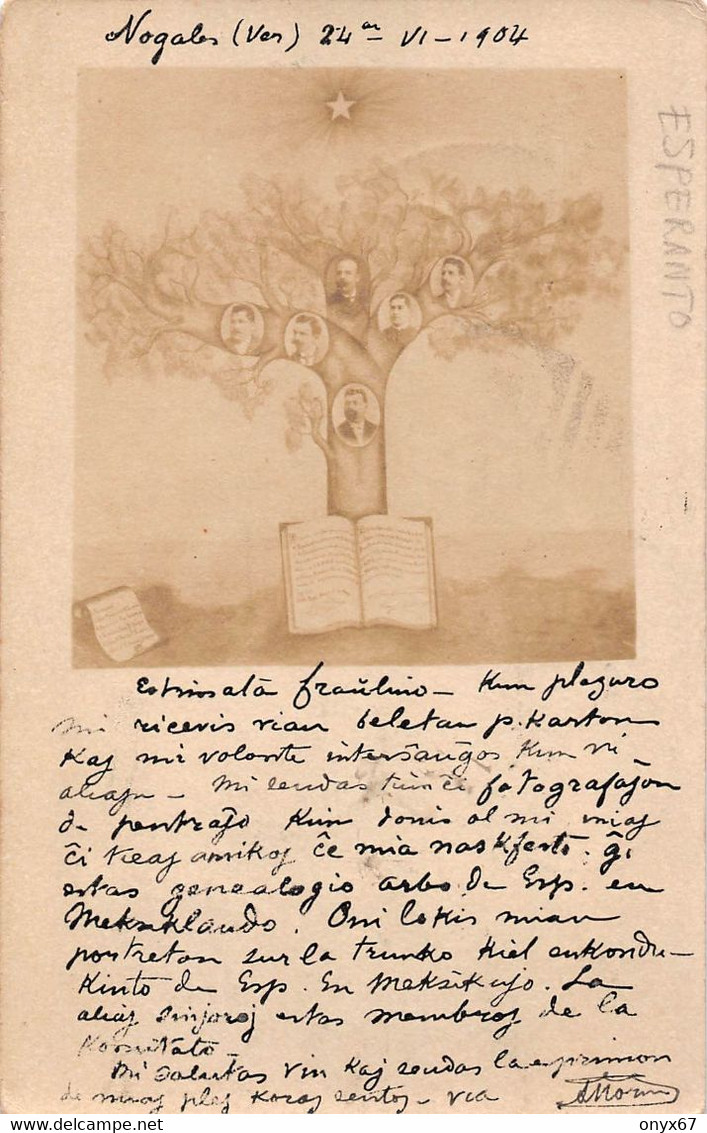 Nogales (Ver) 24an VI-1904
ESPERANTO
Estimatā fraŭlino - Kun plezuro
mi ricevis vian beletan p. karton
Kaj mi volonte interŝanĝos Kun vi
aliajn - Mi sendas tiun ĉi fotografaĵon
de pentraĵo Kiun donis al mi miaj
ĉi tieaj amikoj ĉe mia naskfesto. Ĝi
estas genealogio arbo de Esp. en
Meksiklando. Oni lokis mian
portreton sur la trunko Kiel enkondu-
Kinto de Esp. En Meksikujo. La
aliaj sinjoroj estas membroj de la
Komitato
Mi salutas vin kaj sendas la esprimon
de miaj plej koraj sentoj - via
onyx67
delcampe.net